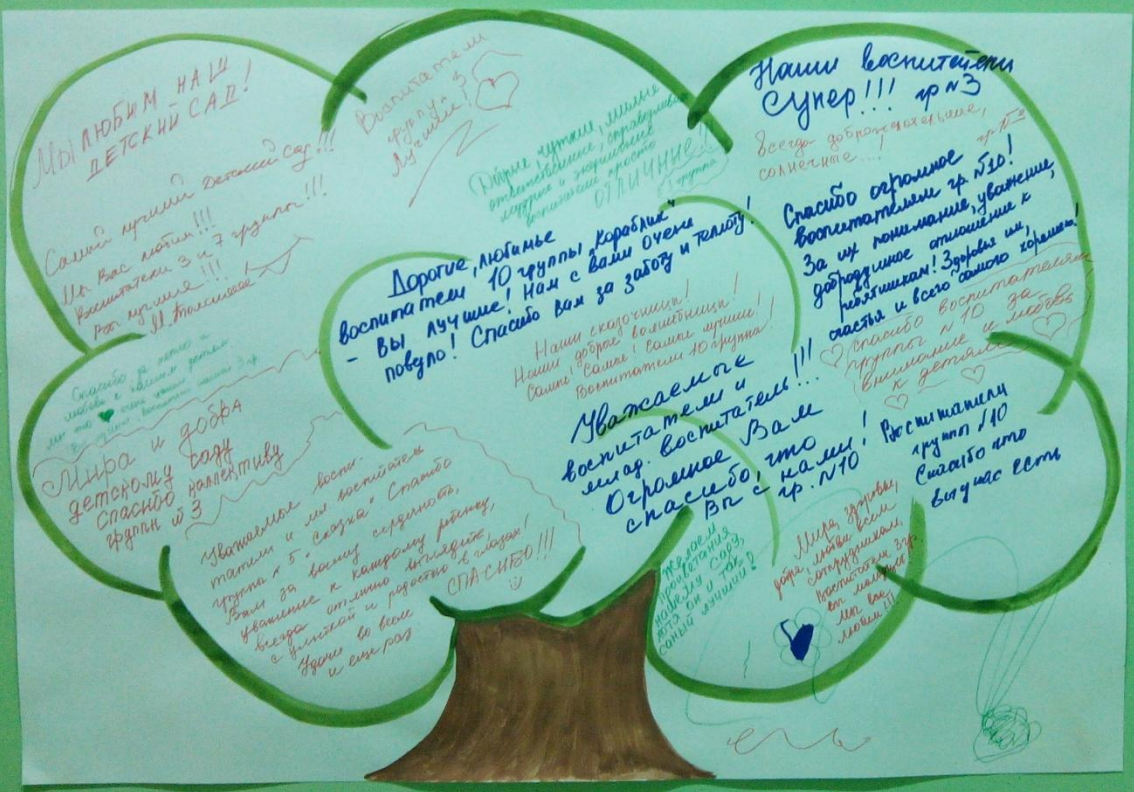 Мы ЛЮБИМ НАШ
ДЕТСКИЙ САД!
Самый лучший детский сад!!!
Мы Вас любим!!!
Воспитатели 3 и 7 группы!!!
Вы лучшие!!!
Воспитатели
группы 3
Лучшие!
Добрые, чуткие, милые
ответственные, справедливые
воспитатели просто
ОТЛИЧНИЕ!!
Наши воспитатели
Супер!!! гр №3
Всегда доброжелательные,
солнечные...! гр. №3
Спасибо огромное
воспитателям гр. №10!
За их понимание, уважение,
добродушное отношение к
ребятишкам! Здоровья им,
счастья и всего самого хорошего!
Спасибо воспитателям
группы №10 за
внимание и любовь
к детям
Дорогие, любимые
воспитатели 10 группы „Кораблик"
- Вы лучшие! Нам с вами очень
повезло! Спасибо вам за заботу и теплоту!
Наши сказочницы!
Наши добрые волшебницы!
Самые! Самые! Самые лучшие!
Воспитатели 10 группы!
Уважаемые
воспитатели и
млад. воспитатель!!!
Огромное Вам
спасибо, что
Вы с нами!
гр. №10
Воспитатили
группы №10
Спасибо што
вы у нас есть
Спасибо за
любовь к нашим детям
Мира и добра
детскому саду
Спасибо коллективу
группы №3
Уважаемые воспи-
татели и мл воспитатель
группы № 5 "Сказка" Спасибо
Вам за вашу сердечность,
уважение к каждому ребенку,
всегда отлично выглядите,
с улыбкой и радостью в глазах!
Удачи во всем
и еще раз СПАСИБО!!!
Желаем
процветания
нашему саду,
хотя он и так
самый лучший!
Мира, здоровья,
добра, любви всем
сотрудникам.
Воспитатели 3 гр.
вы молодцы!
Мы вас
любим!!!